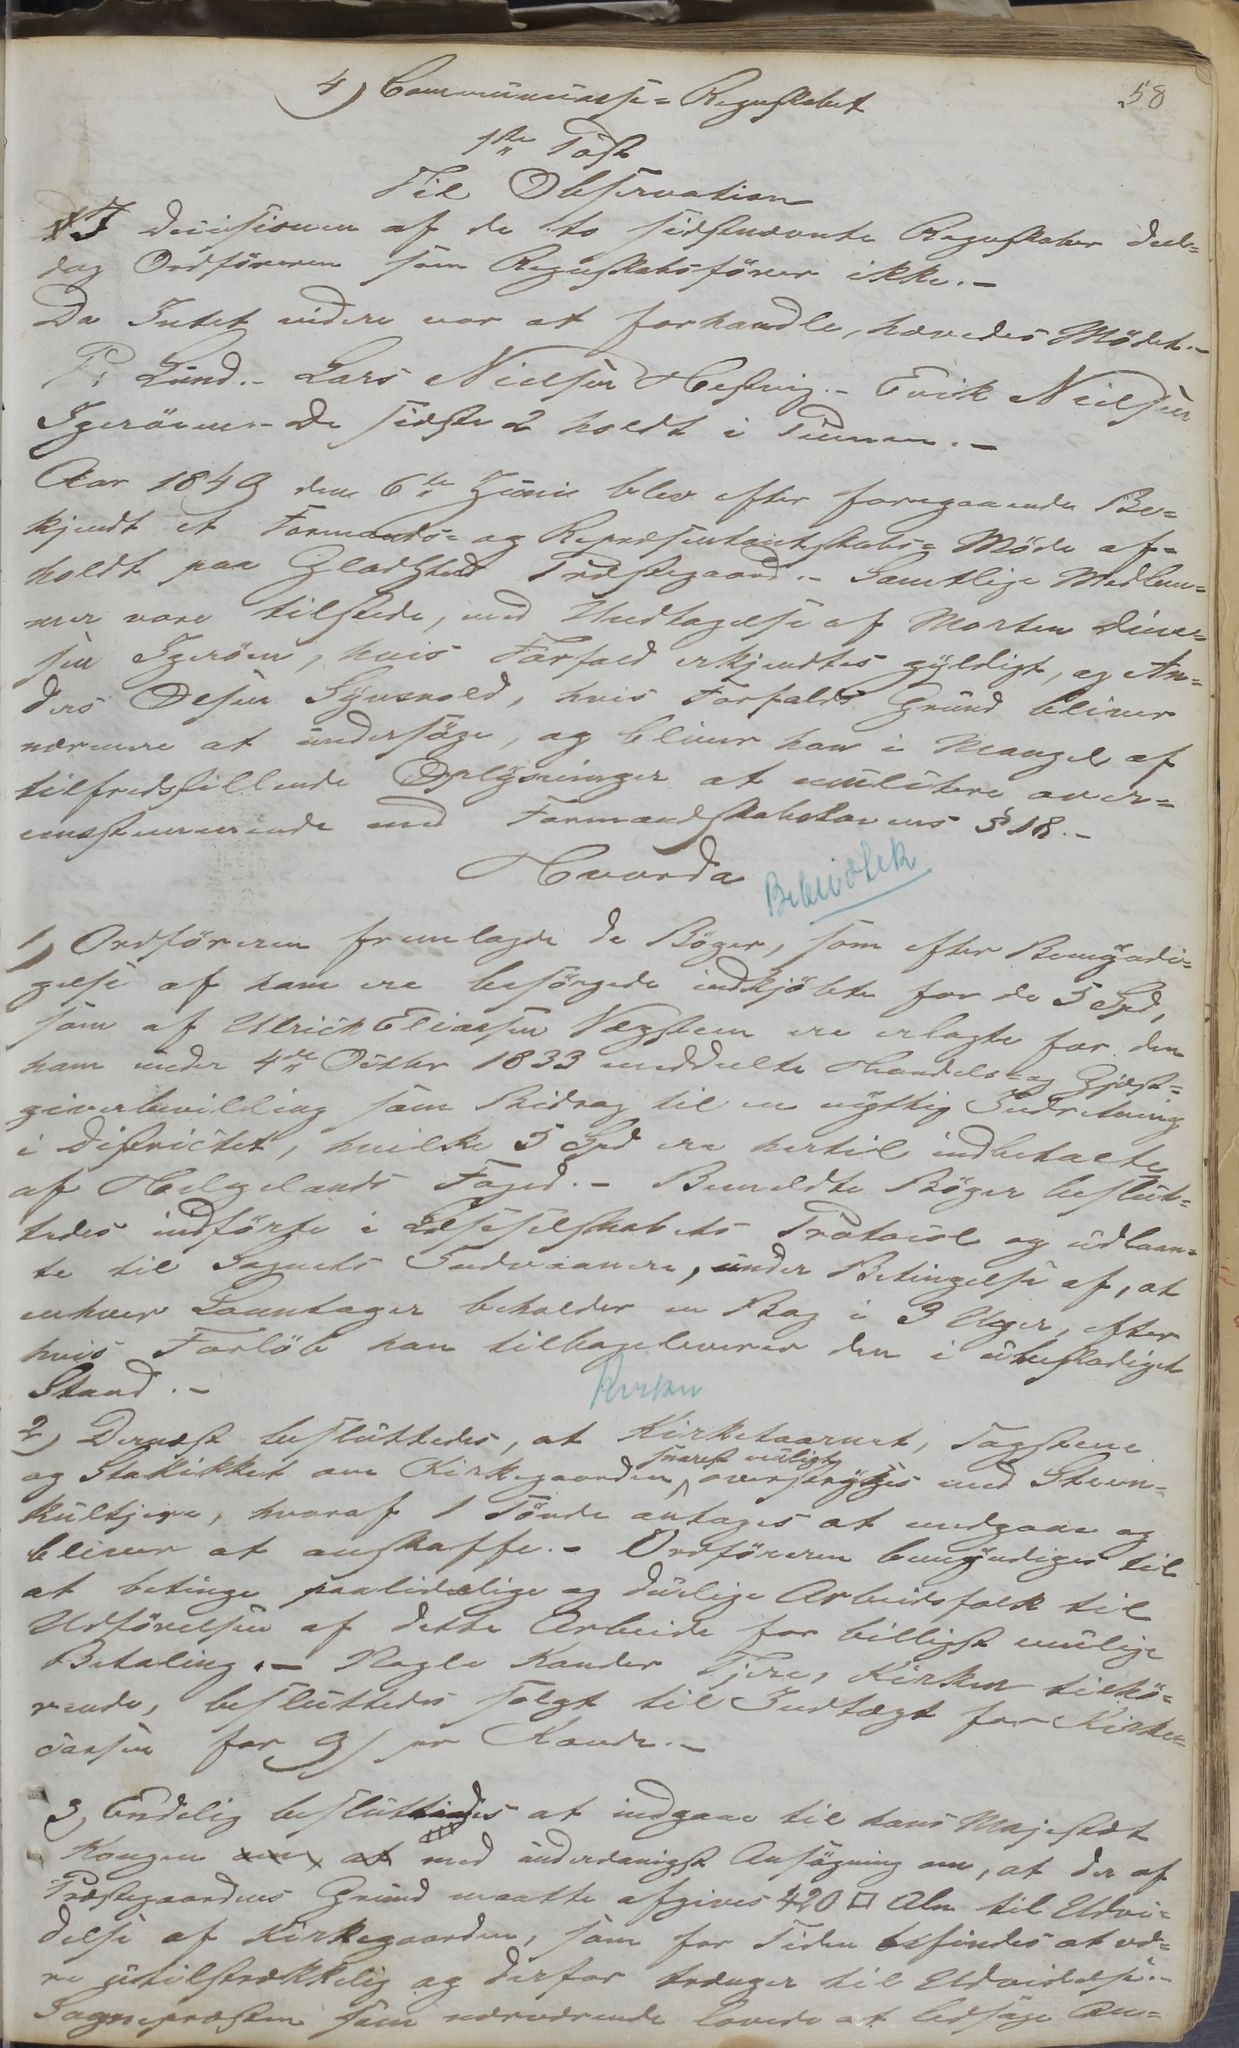 58
4) Communecasse-Regnskabet
1ste Post
Til Observation
I Decisionen af de to sidstnævnte Regnskaber deel-
tog Ordføreren som Regnskabsfører ikke.-
Da Intet videre var at forhandle, hævedes Mødet.-
P. Lund.- Lars Nielsen Hestvig.- Erik Nielsen
Igerøen.- De sidste 2 holdt i Pennen.-
Aar 1849 den 6te Junii blev efter foregaaende Be-
kjendt et Formands- og Repræsentantskabs-Møde af-
holdt paa Gladstad Præstegaard.- Samtlige Medlem-
mer vare tilstede, med Undtagelse af Morten Dine-
sen Igerøen, hvis Forfald erkjendtes gyldigt, og An-
ders Olsen Synsvold, hvis Forfalds Grund bliver
nærmere at undersøge, og bliver han i Mangel af
tilfredsstillende Oplysninger at mulctere over-
eensstemmende med Formandskabslovens § 18.-
Hvorda
Bibliothek
1) Ordføreren fremlagde de Bøger, som efter Bemyndi-
gelse af ham ere besørgede indkjøbte for de 5 Spd,
som af Ulrich Eliassen Vægsteen ere erlagte for den
ham under 4de Octbr 1833 meddeelte Handels- og Gjæst-
giverbevilling som Bidrag til en nyttig Indretning
i Districtet, hvilke 5 Spd ere hertil indbetalte
af Helgelands Foged.- Bemeldte Bøger beslut-
tedes indførte i Læseselskabets Protocol og udlaan-
te til Sognets Indvaanere, under Betingelse af, at
enhver Laantager beholder en Bog i 3 Uger, efter
hvis Forløb han tilbageleverer den i ubeskadiget
Stand.-
Kirken
2) Dernæst besluttedes, at Kirketaarnet, Tagstene
og Stakittet om Kirkegaarden snarest muligt overstryges med Steen-
kultjære, hvoraf 1 Tønde antages at medgaae og
bliver at anskaffe.- Ordføreren bemyndiges til
at betinge paalidelige og duelige Arbeidsfolk til
Udførelsen af dette Arbeide for billigst mulige
Betaling.- Nogle Kander Tjære, Kirken tilhø-
rende, besluttedes solgt til Indtægt for Kirke-
cassen for 9 s pr Kande.-
3) Endelig besluttedes at indgaae til hans Majestæt
Kongen med underdanigst Ansøgning om, at der af
Præstegaardens Grund maatte afgives 420 □ Alen til Udvi-
delse af Kirkegaarden, som for Tiden befindes at væ-
re utilstrækkelig og derfor trænger til Udvidelse.-
Sognepræsten som nærværende lovede at ledsage An-